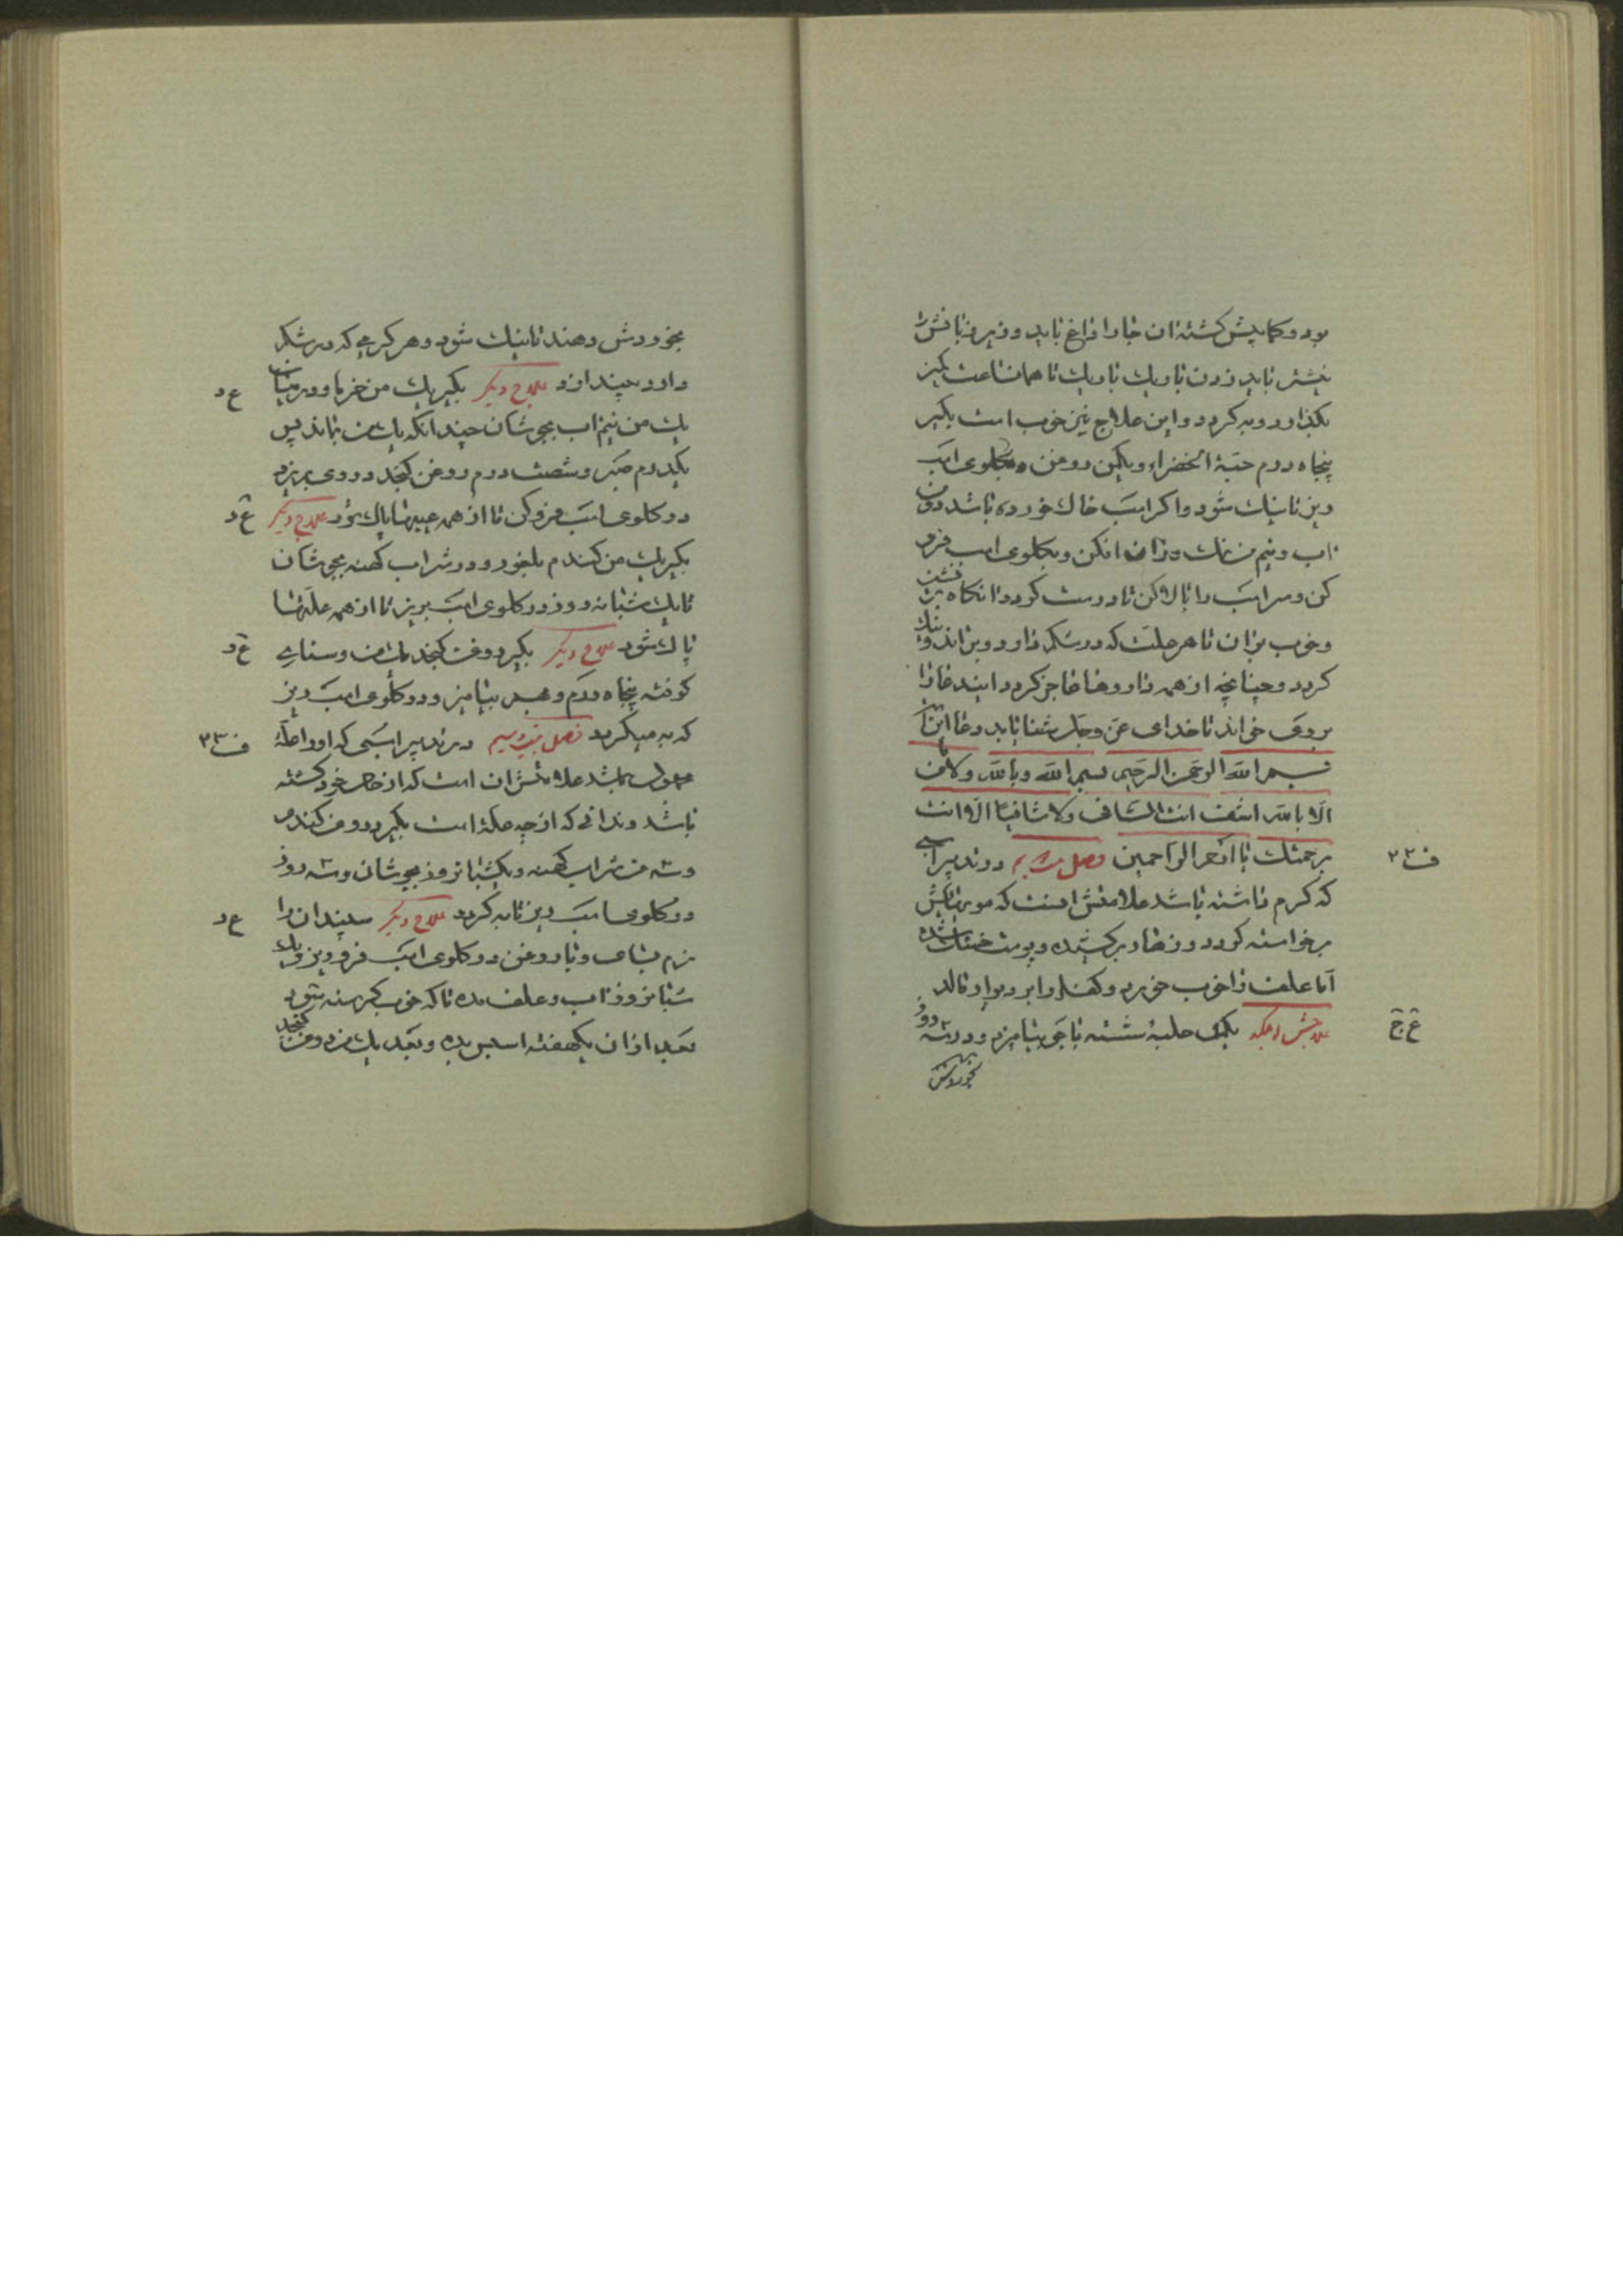 بود و کمابیش کشته ان جا را داغ باید و زیر زبانش
نیشتر باید زدن تاریك تاریك تا همان ساعت کمیز
بکذارد و به کردد و این علاج نیز خوب است بکیر
پنجاه درم حبة الخضراء و یکمن روغن بکلوی اسب
ریز تا نیك شود و اکر اسب خاك خورده باشد دو من
اب و نیم من نمك دران افکن و بکلوی اسب فرو
کن و سر اسب را بالا کن تا درست کردد انکاه بر نشین
و خوب بران تا هر علت که در شکم دارد و براند و نیك
کردد و چنانچه از همه داروها عاجز کردد ایند دعا را
بر وی خواند تا خدای عز و جل شفا یابد دعا این است
بسم الله الرحمن الرحیم بسم الله و بالله و لا من
الا بالله اشف انت الشاف و لا شافیا الا انت
برحمتك یا ارحم الراحمین فصل در تدبیر اسبی
که کرم داشته باشد علامتش انست که مویهایش
برخواسته کردد و زهار برکشیده و پوست خشك شده
اما علف را خوب خورد و کفل را بر دیوار مالد
علاجش انکه یکمن حلبهٔ شسته با جو بیامیزد و در سه روز
بخوردش
ف ٣٢
ع ج
بخوردش دهند تا نیك شود و هر کرمی که در شکم
دارد بیندازد علاج دیکر بکیر یك من خرما و در میان
یك من نیم اب بجوشان چندانکه یك من بماند پس
یکدرم صبر و شصت درم روغن کنجد در وی بریزد
در کلوی اسب فرو کن تا از همه عیبها پاك شود علاج دیکر
بکیر یك من کندم بلغور و در شراب کهنه بجوشان
تا یك شبانه روز در کلوی اسب بریز تا از همه علتها
پاك شود علاج دیکر بکیر روغن کنجد یك من و سنای
کوفته پنجاه درم و بهم بیامیز و در کلوی اسب ریز
که به میکردد فصل در تدبیر اسبی که او را علهٔ
مجهول باشد علامتش ان است که از حال خود کشته
باشد و ندانی که از چه علة است بکیر دو من کندم
و سه من شراب کهنه و یکشبانروز بجوشان و سه روز
در کلوی اسب ریز تا به کردد علاج دیکر سپندان را
نرم بسای و با روغن در کلوی اسب فرو ریز و یك
شبانروز اب و علف مده تا که خوب کرسنه شود
بعد از ان یکهفته اسپس بده و بعد یك من روغن کنجد
ع د
ع د
ع د
ف ٣٣
ع د